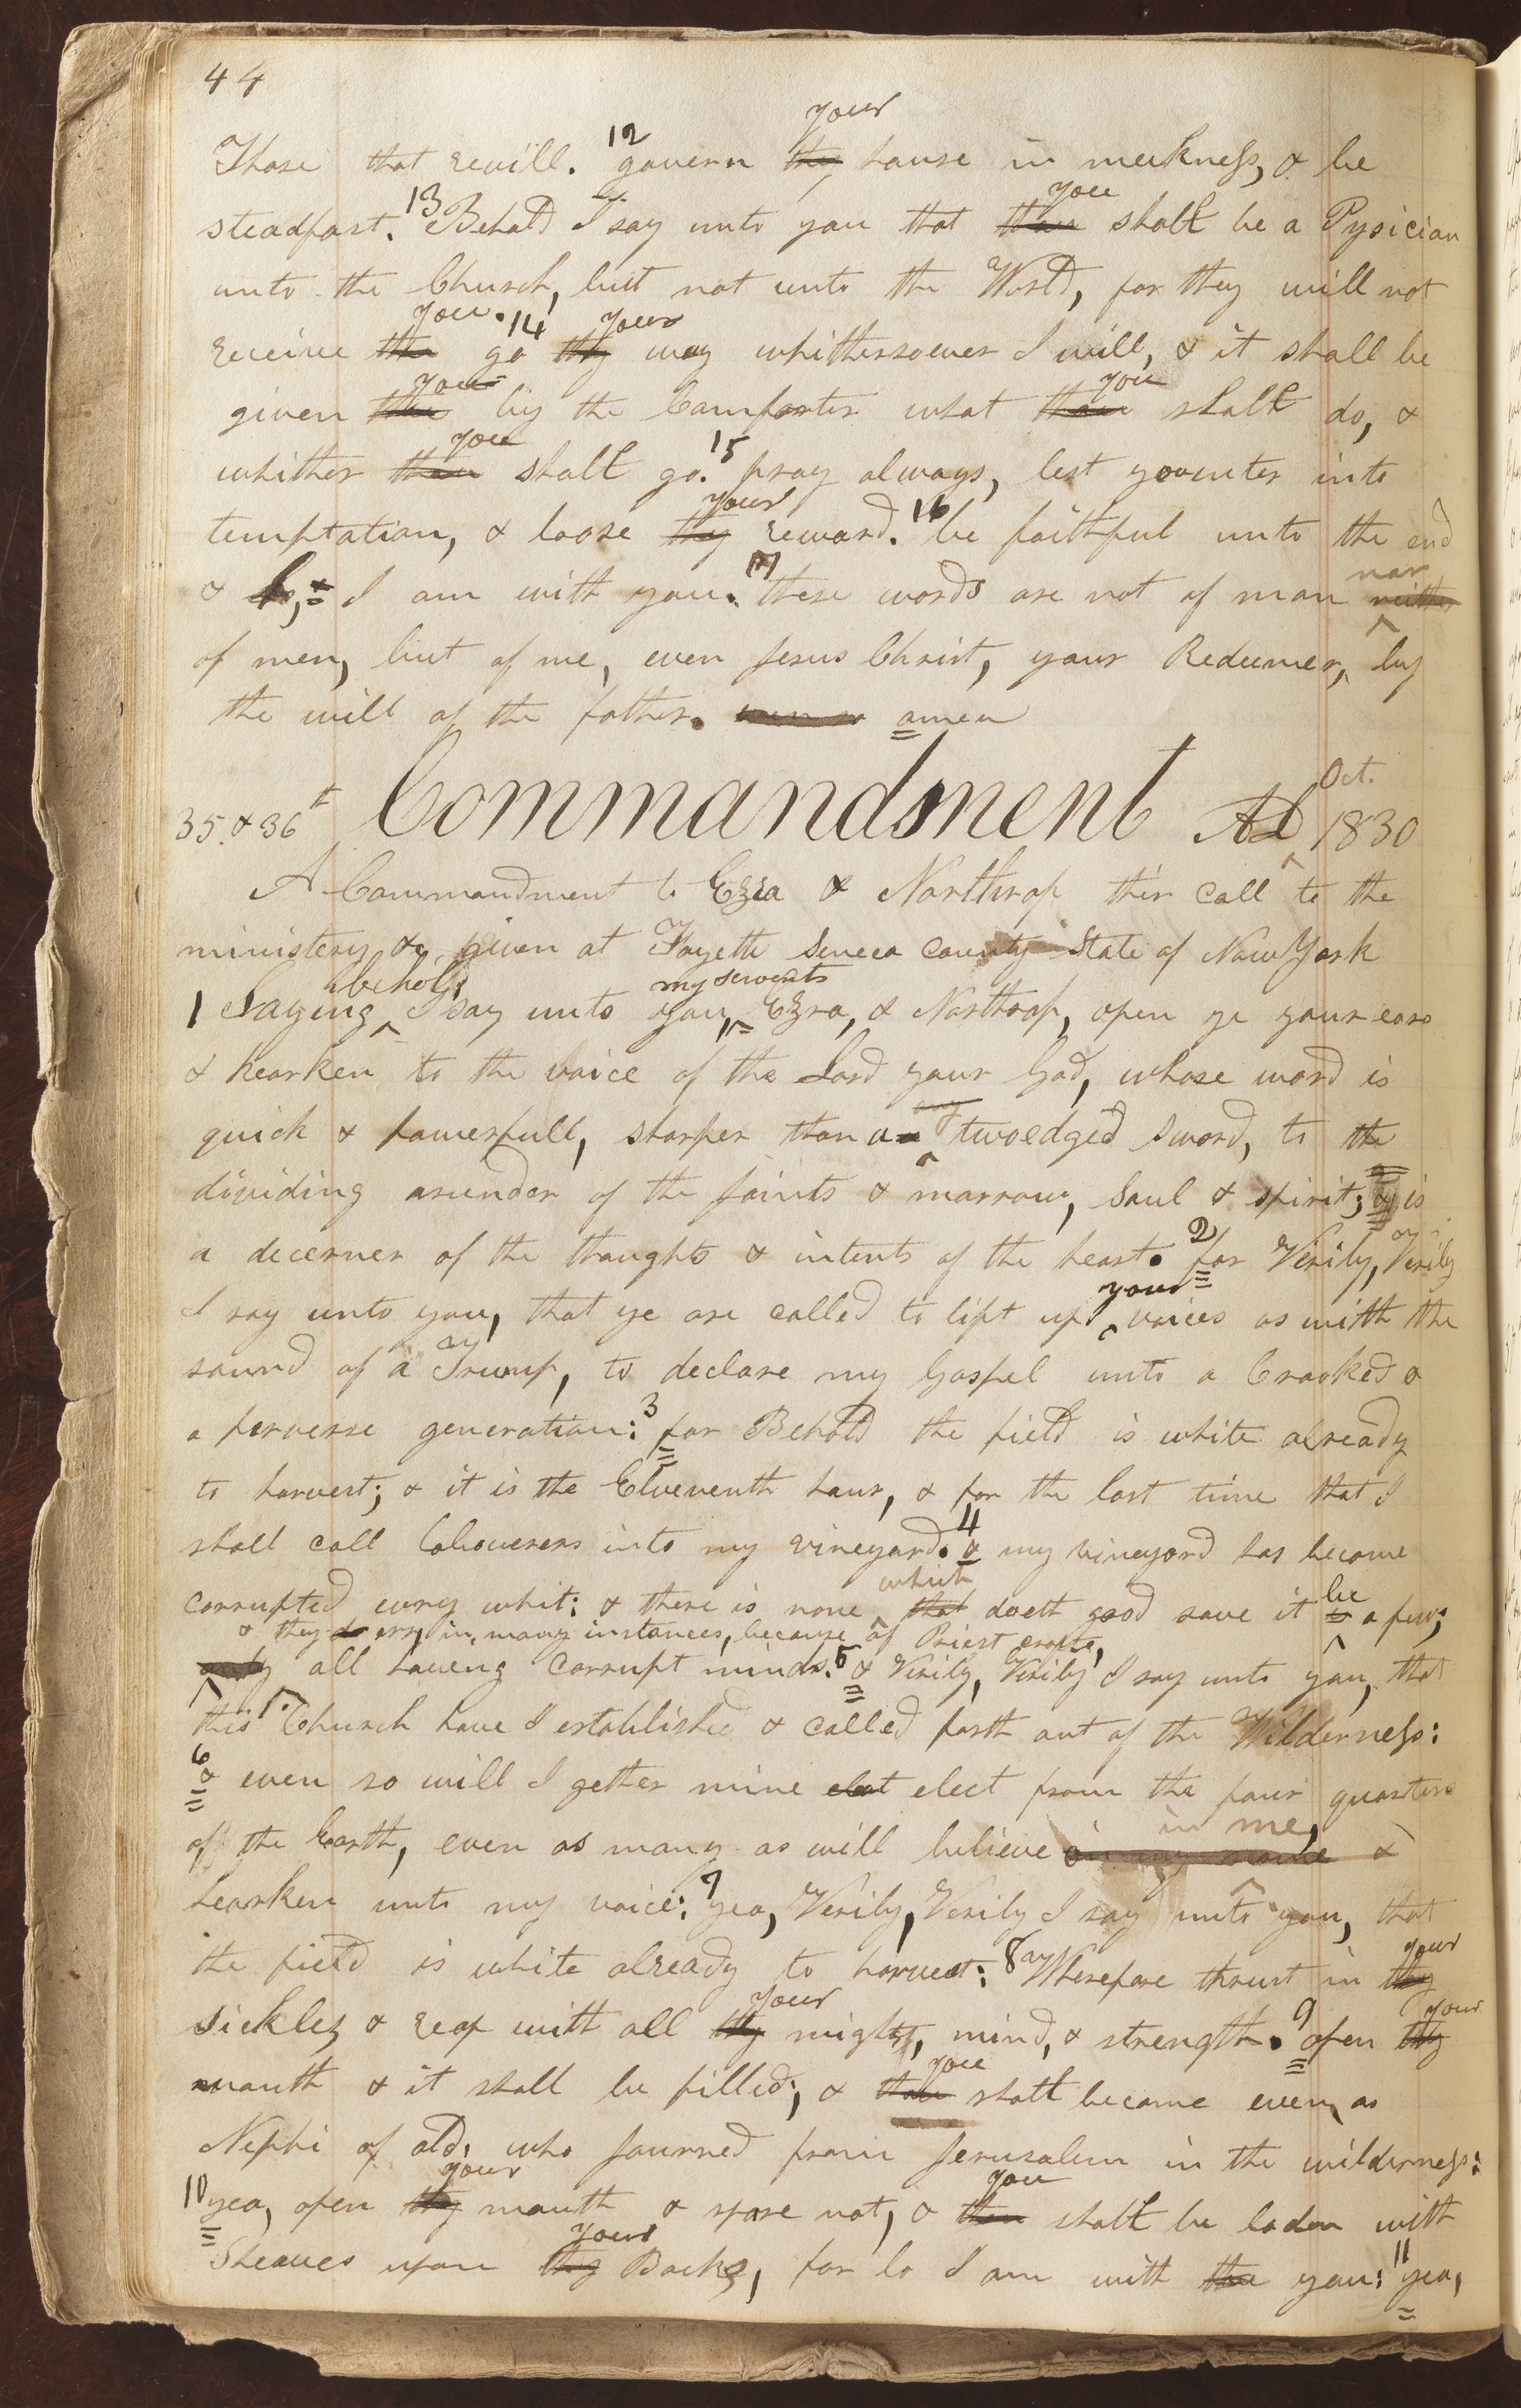 44
your
Those that revill. 12 govern thy house in meekness, & be
you
steadfast. 13 Behold I say unto you that thou shalt be a Pysician
unto the Church, but not unto the World, for they will not
you. 14 your
receive thee go thy way whithersoever I will, & it shall be
you you
given thee by the Comforter what thou shalt do, &
you 15
whither thou shalt go. pray always, lest you enter into
your 16
temptation, & loose thy reward. be faithful unto the end
17 nor
& lo, I am with you. these words are not of man neither
of men, but of me, even Jesus Christ, your Redeemer, by
the will of the father. even so amen
Oct.
35 & 36t Commandment AD 1830
A Commandment to Ezra & Northrop their call to the
ministery &c given at Fayette Seneca County State of New York
behold, my servents
1 Saying I say unto you, Ezra, & Northrop, open ye your ears
& hearken to the voice of the Lord your God, whose word is
any
quick & powerfull, sharper than a twoedged sword, to the
dividing asunder of the joints & marrow, Soul & spirit; & is
a decerner of the thoughts & intents of the heart. 2 for Verily, Verily
your
I say unto you, that ye are called to lift up voices as with the
sound of a Trump, to declare my Gospel unto a Crooked &
a perverse generation: 3 for Behold the field is white already
to harvest; & it is the Eleventh hour, & for the last time that I
4
shall call Labourers into my vineyard. & my vineyard has become
which be
corrupted evry whit: & there is none that doeth good save it is a few;
& they do err, in many instances, because of Priest crafts,
only all haveing corrupt minds. 5 & Verily, Verily I say unto you, that
this Church have I established & called forth out of the Wilderness:
6 & even so will I gether mine elect from the four quarters
in me,
of the Earth, even as many as will believe on my name &
hearken unto my voice: 7 yea, Verily, Verily I say unto you, that
your
the field is white already to harvest: 8 Wherefore thrust in thy
your your
sickles & reap with all thy might, mind, & strength. 9 open thy
you
mouth & it shall be filled; & thou shalt become even as
Nephi of old, who journed from Jerusalem in the wilderness:
your you
10 yea, open thy mouth & spare not, & thou shalt be laden with
your
Sheaves upon thy Backs, for lo I am with thee you: 11 yea,